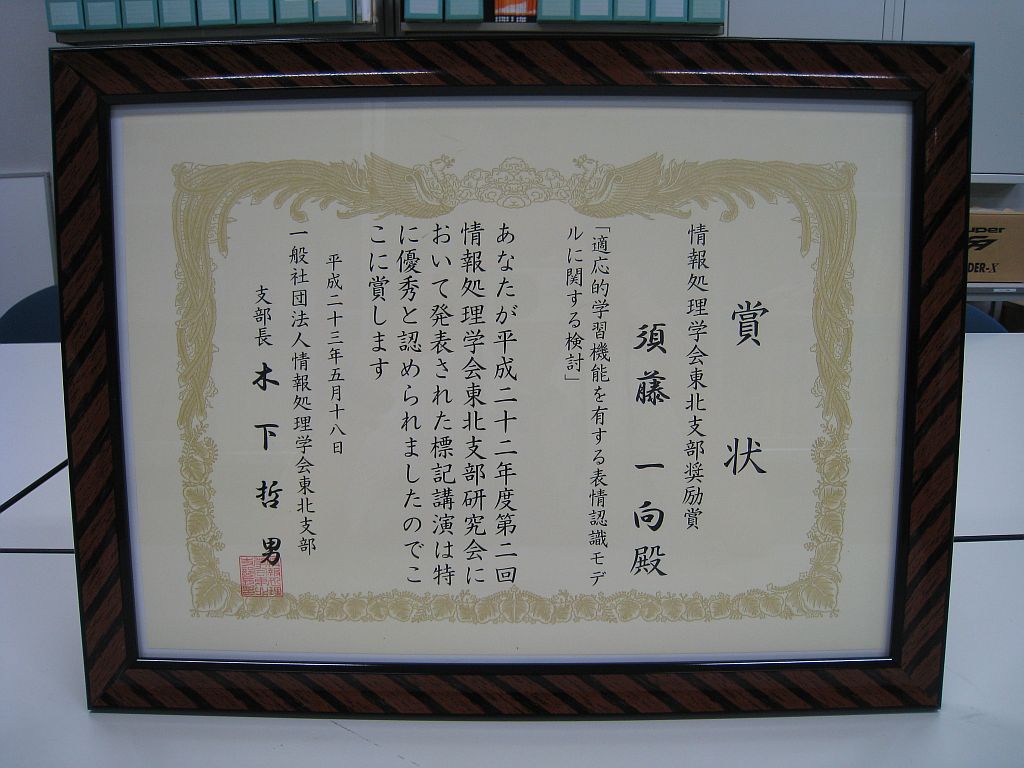 賞状
情報処理学会東北支部奨励賞
須藤一向殿
「適応的学習機能を有する表情認識モデ
ルに関する検討」
あなたが平成二十二年度第二回
情報処理学会東北支部研究会に
おいて発表された標記講演は特
に優秀と認められましたのでこ
こに賞します
平成二十三年五月十八日
一般社団法人情報処理学会東北支部
支部長 木下哲男
uper
DER-X